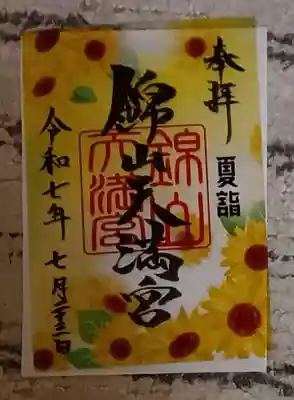 奉拝
夏詣
錦山天満宮
錦山
天満宮
令和七年 七月二十三日